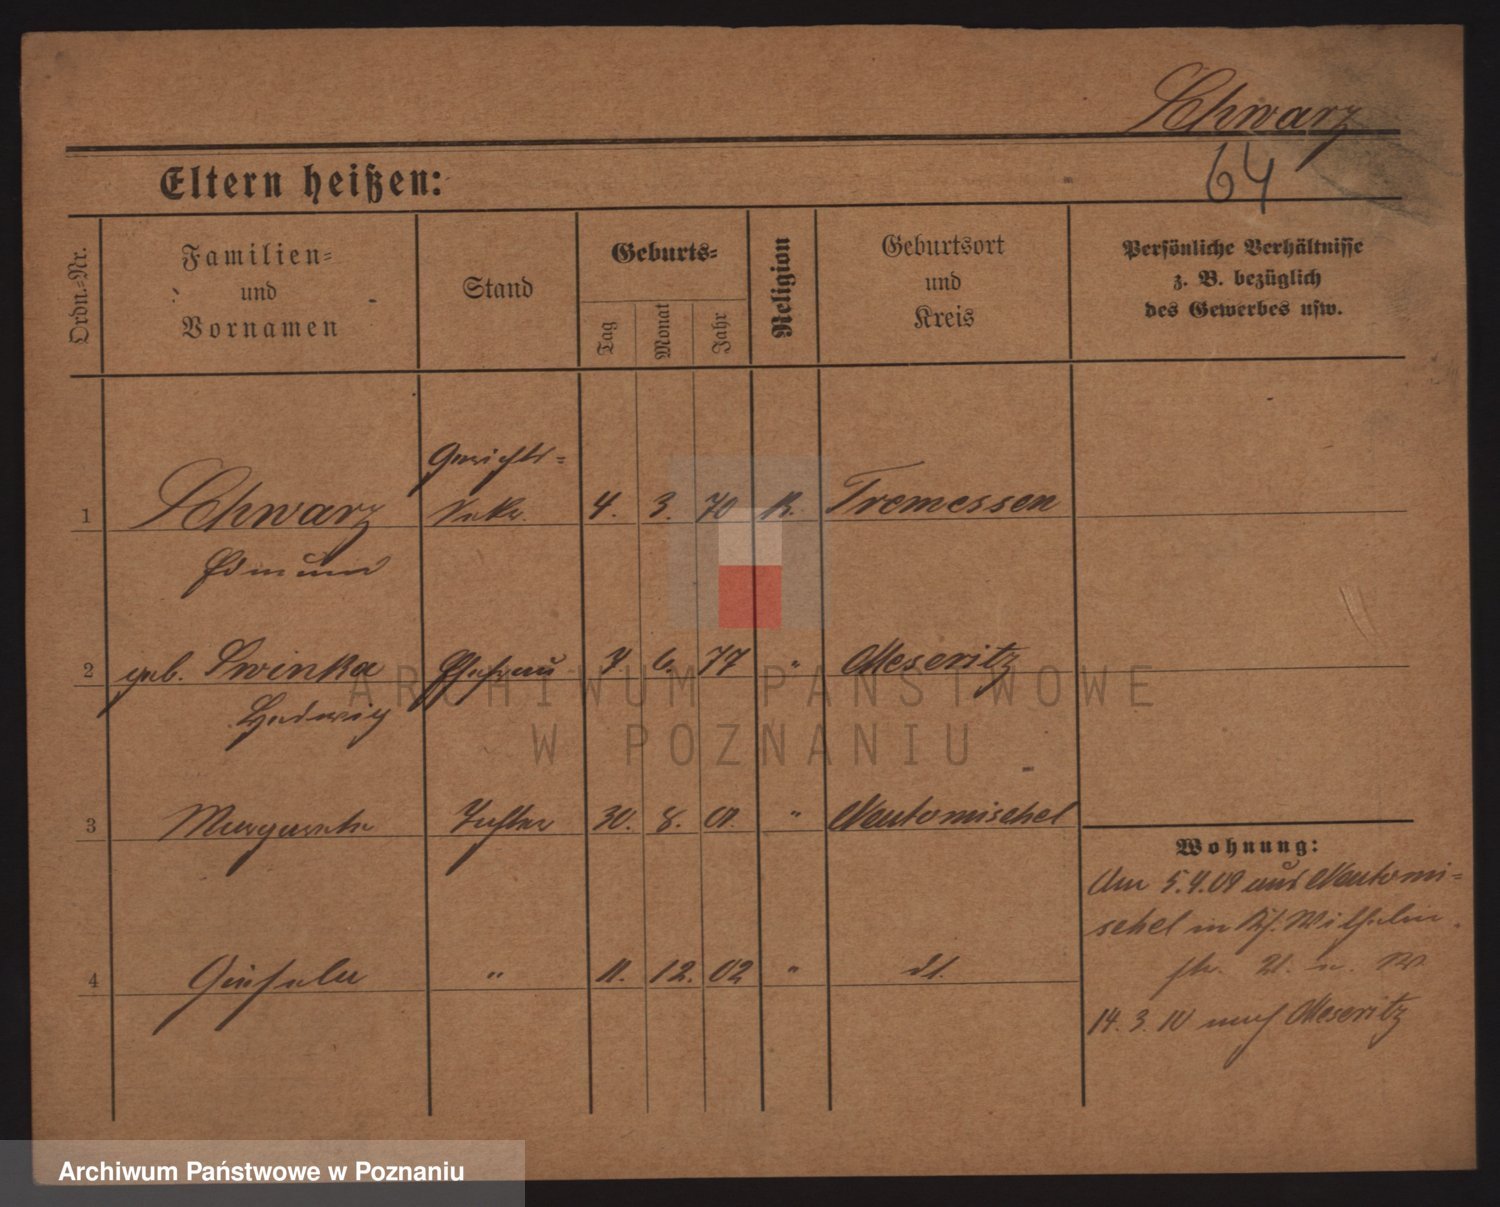 Schwarz
64
Eltern heißen:
Ordn.-Nr.
Familien-
und
Vornamen
Stand
Geburts-
Tag
Monat
Jahr
Religion
Geburtsort
und
Kreis
Persönliche Verhältnisse
z. B. bezüglich
des Gewerbes usw.
Gerichts-
1 Schwarz Sekr. 4. 3. 70 K. Tremessen
Edmund
2 geb. Swinka Ehefrau 7 6. 77 " Meseritz
Hedwig
3 Margarete Tochter 30. 8. 01. " Neutomischel
Wohnung:
Am 5.4.09 aus Neutomi-
schel in Kf. Wilhelm
4 " 11. 12. 02 " dt.
str. 21. n. W
14. 3. 10 nach Meseritz
ARCHIWUM PAŃSTWOWE
W POZNANIU
Archiwum Państwowe w Poznaniu